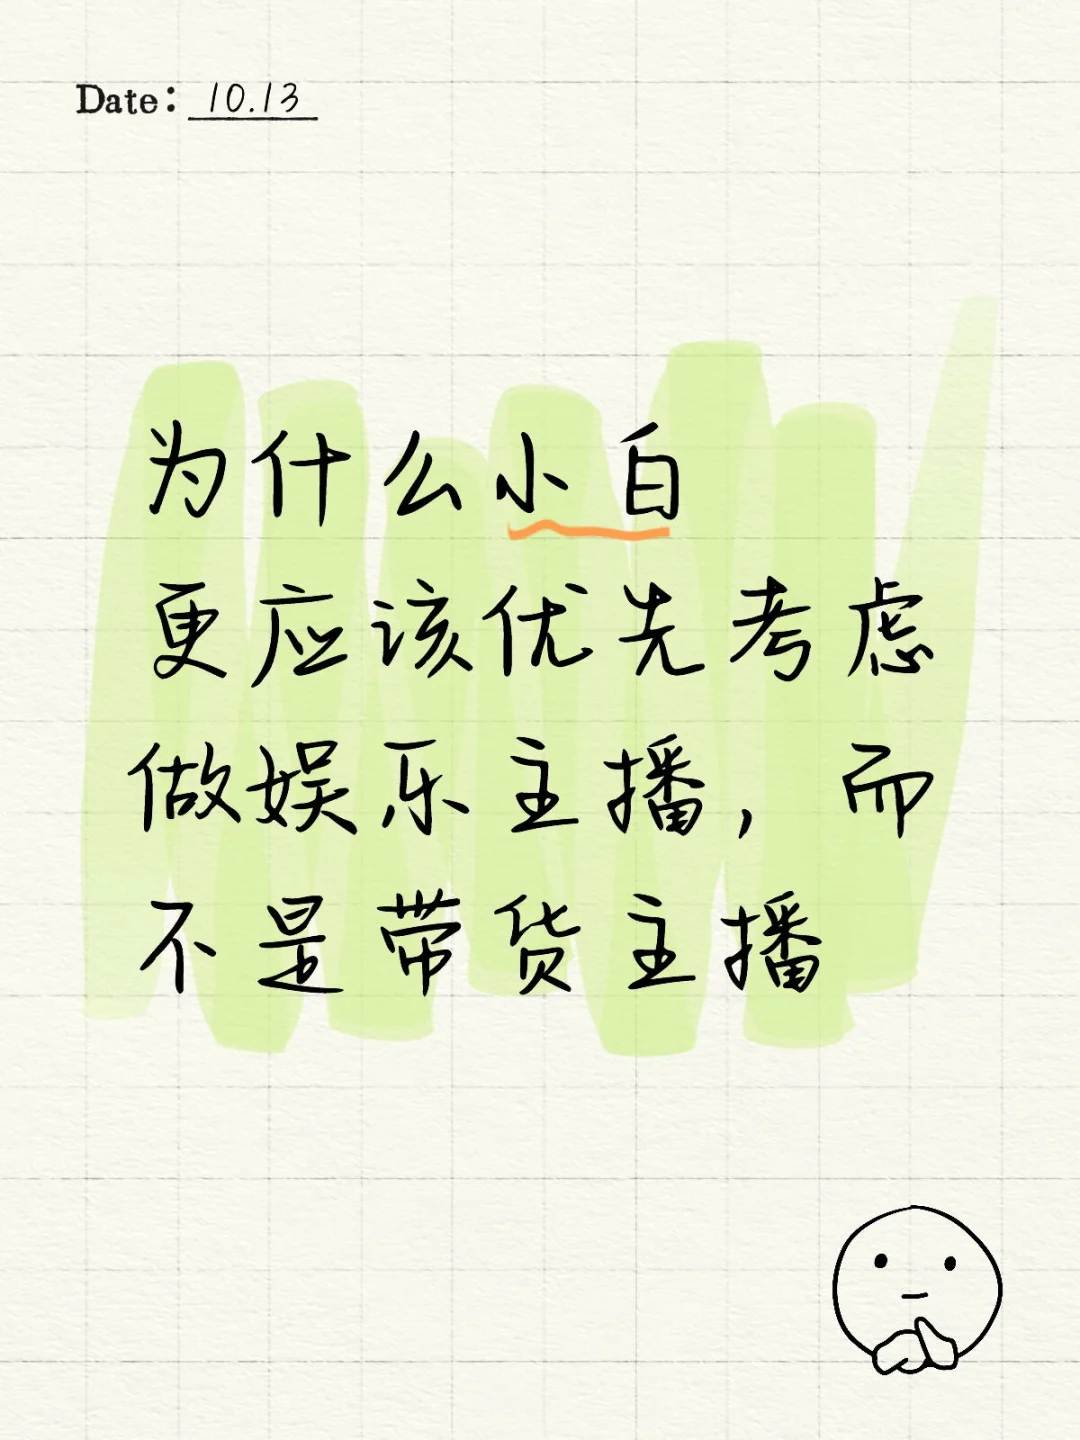 Date: 10.13
为什么小白
更应该优先考虑
做娱乐主播，而
不是带货主播